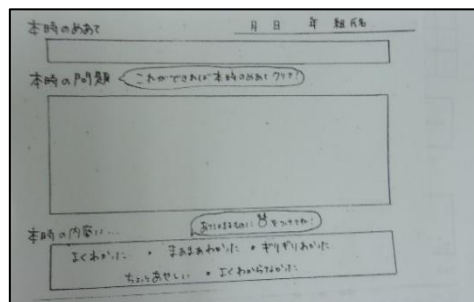 本時のめあて 月 日 年 組 氏名
本時の問題 これができれば本時のめあてクリア!
本時の内容は… あてはまるものに をつけてね!
よくわかった ・ まあまあわかった ・ ギリギリわかった
ちょっとあやしい ・ よくわからなかった